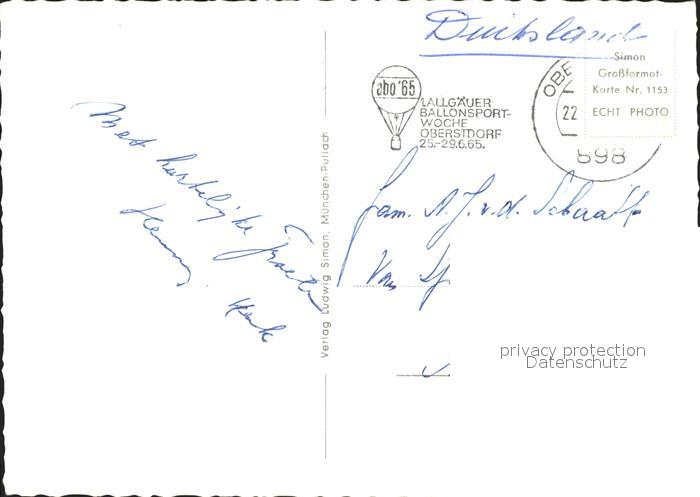 Duitsland
Simon
Großformat-
Karte Nr. 1153
ECHT PHOTO
abo '65
1.ALLGÄUER
BALLONSPORT-
WOCHE
OBERSTDORF
25.-29.6.65.
OBE
22
898
Met hartelijke groeten
Henk
Verlag Ludwig Simon, München-Pullach
Fam. A.J. v.d.
privacy protection
Datenschutz